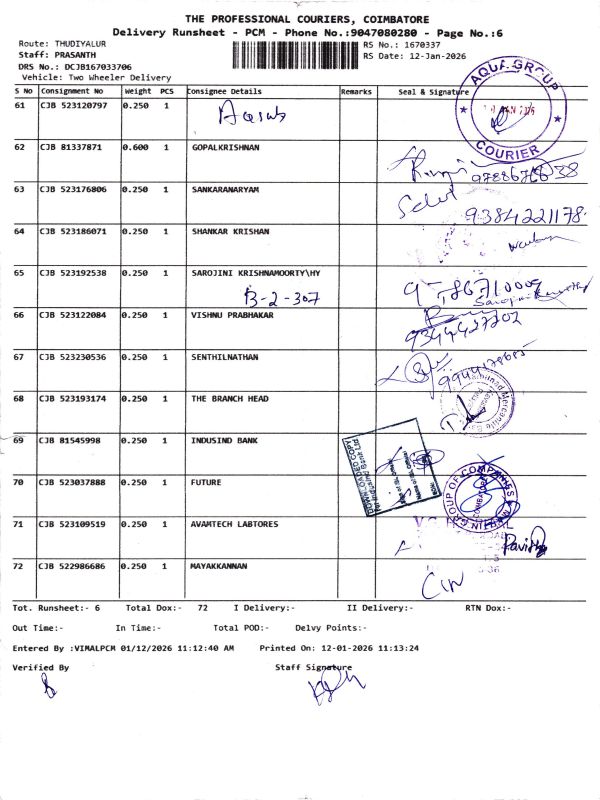 THE PROFESSIONAL COURIERS, COIMBATORE
Delivery Runsheet - PCM - Phone No.:9047080280 - Page No.:6
Route: THUDIYALUR
Staff: PRASANTH
DRS No.: DCJB167033706
Vehicle: Two Wheeler Delivery
RS No.: 1670337
RS Date: 12-Jan-2026
S No Consignment No Weight PCS Consignee Details Remarks Seal & Signature
61 CJB 523120797 0.250 1
AQUA GROUP
COURIER
62 CJB 81337871 0.600 1 GOPALKRISHNAN
63 CJB 523176806 0.250 1 SANKARANARYAM
9384221178
64 CJB 523186071 0.250 1 SHANKAR KRISHAN
65 CJB 523192538 0.250 1 SAROJINI KRISHNAMOORTY\HY
B-2-307
66 CJB 523122084 0.250 1 VISHNU PRABHAKAR
67 CJB 523230536 0.250 1 SENTHILNATHAN
68 CJB 523193174 0.250 1 THE BRANCH HEAD
69 CJB 81545998 0.250 1 INDUSIND BANK
70 CJB 523037888 0.250 1 FUTURE
GROUP OF COMPANIES
COIMBATORE
71 CJB 523109519 0.250 1 AVAMTECH LABTORES
72 CJB 522986686 0.250 1 MAYAKKANNAN
Tot. Runsheet:- 6 Total Dox:- 72 I Delivery:- II Delivery:- RTN Dox:-
Out Time:- In Time:- Total POD:- Delvy Points:-
Entered By :VIMALPCM 01/12/2026 11:12:40 AM Printed On: 12-01-2026 11:13:24
Verified By Staff Signature